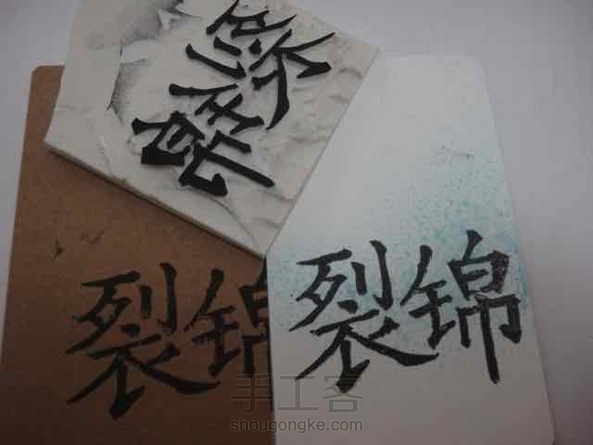 裂锦
裂锦
手工客
shougongke.com